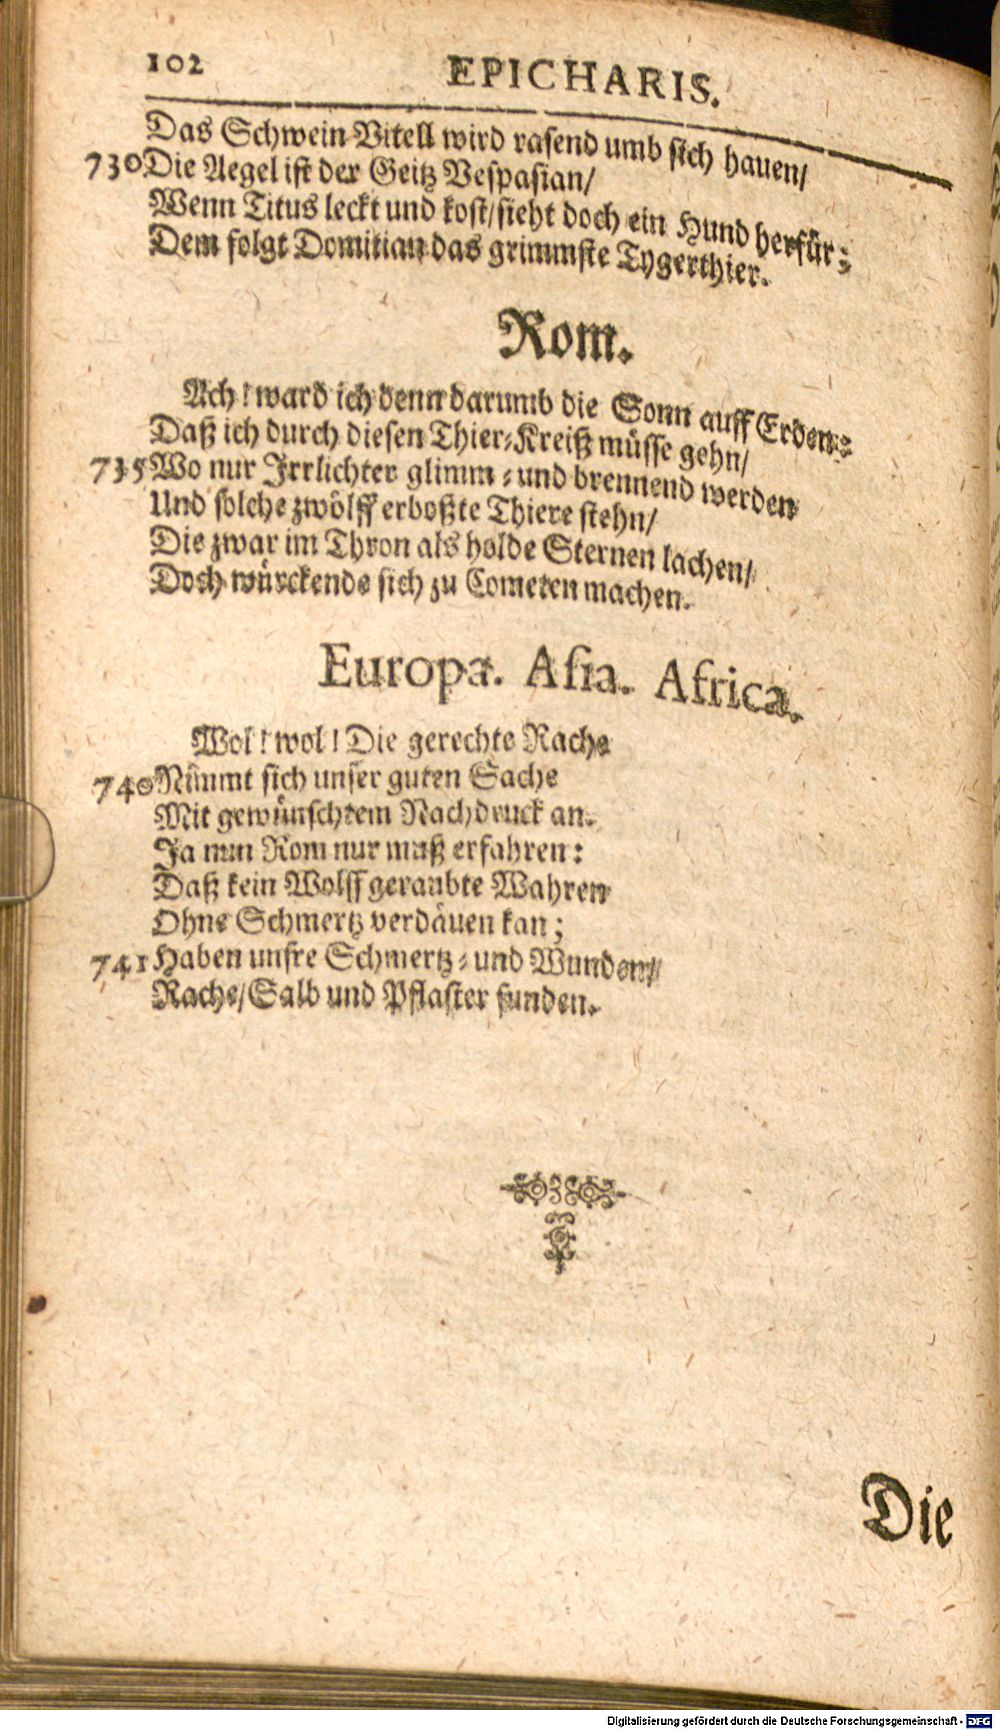 102 EPICHARIS.
Das Schwein Vitell wird rasend umb sich hauen/
730 Die Aegel ist der Geitz Vespasian/
Wenn Titus leckt und kost/sieht doch ein Hund herfür;
Dem folgt Domitian das grimmste Tygerthier.
Rom.
Ach! ward ich denn darumb die Sonn auff Erden:
Daß ich durch diesen Thier-Kreiß müsse gehn/
735 Wo nur Irrlichter glimm- und brennend werden
Und solche zwölff erboßte Thiere stehn/
Die zwar im Thron als holde Sternen lachen/
Doch würckende sich zu Cometen machen.
Europa. Asia. Africa.
Wol! wol! Die gerechte Rache
740 Nimmt sich unser guten Sache
Mit gewünschtem Nachdruck an.
Ja nun Rom nur muß erfahren:
Daß kein Wolff geraubte Wahren
Ohne Schmertz verdäuen kan;
741 Haben unsre Schmertz- und Wunden/
Rache/Salb und Pflaster funden.
Die
Digitalisierung gefördert durch die Deutsche Forschungsgemeinschaft - DFG